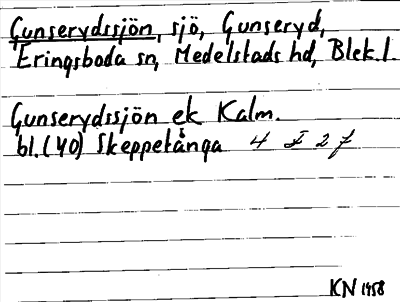 Gunserydssjön, sjö, Gunseryd,
Eringsboda sn, Medelstads hd, Blek.l.
Gunserydssjön ek Kalm.
bl. (40) Skeppetånga 4 F 2 f
KN 1958